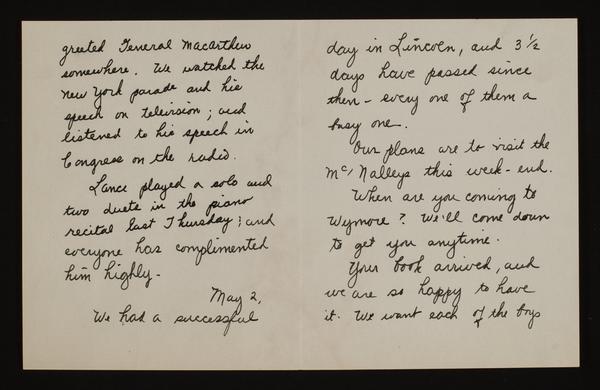 greeted General Macarthur
somewhere. We watched the
New York parade and his
speech on television; and
listened to his speech in
Congress on the radio.
Lance played a solo and
two duets in the piano
recital last Thursday; and
everyone has complimented
him highly-
May 2,
We had a successful
day in Lincoln, and 3 1/2
days have passed since
then - every one of them a
busy one.
Our plans are to visit the
McNalleys this week-end.
When are you coming to
Wymore? We'll come down
to get you anytime.
Your book arrived, and
we are so happy to have
it. We want each of the boys